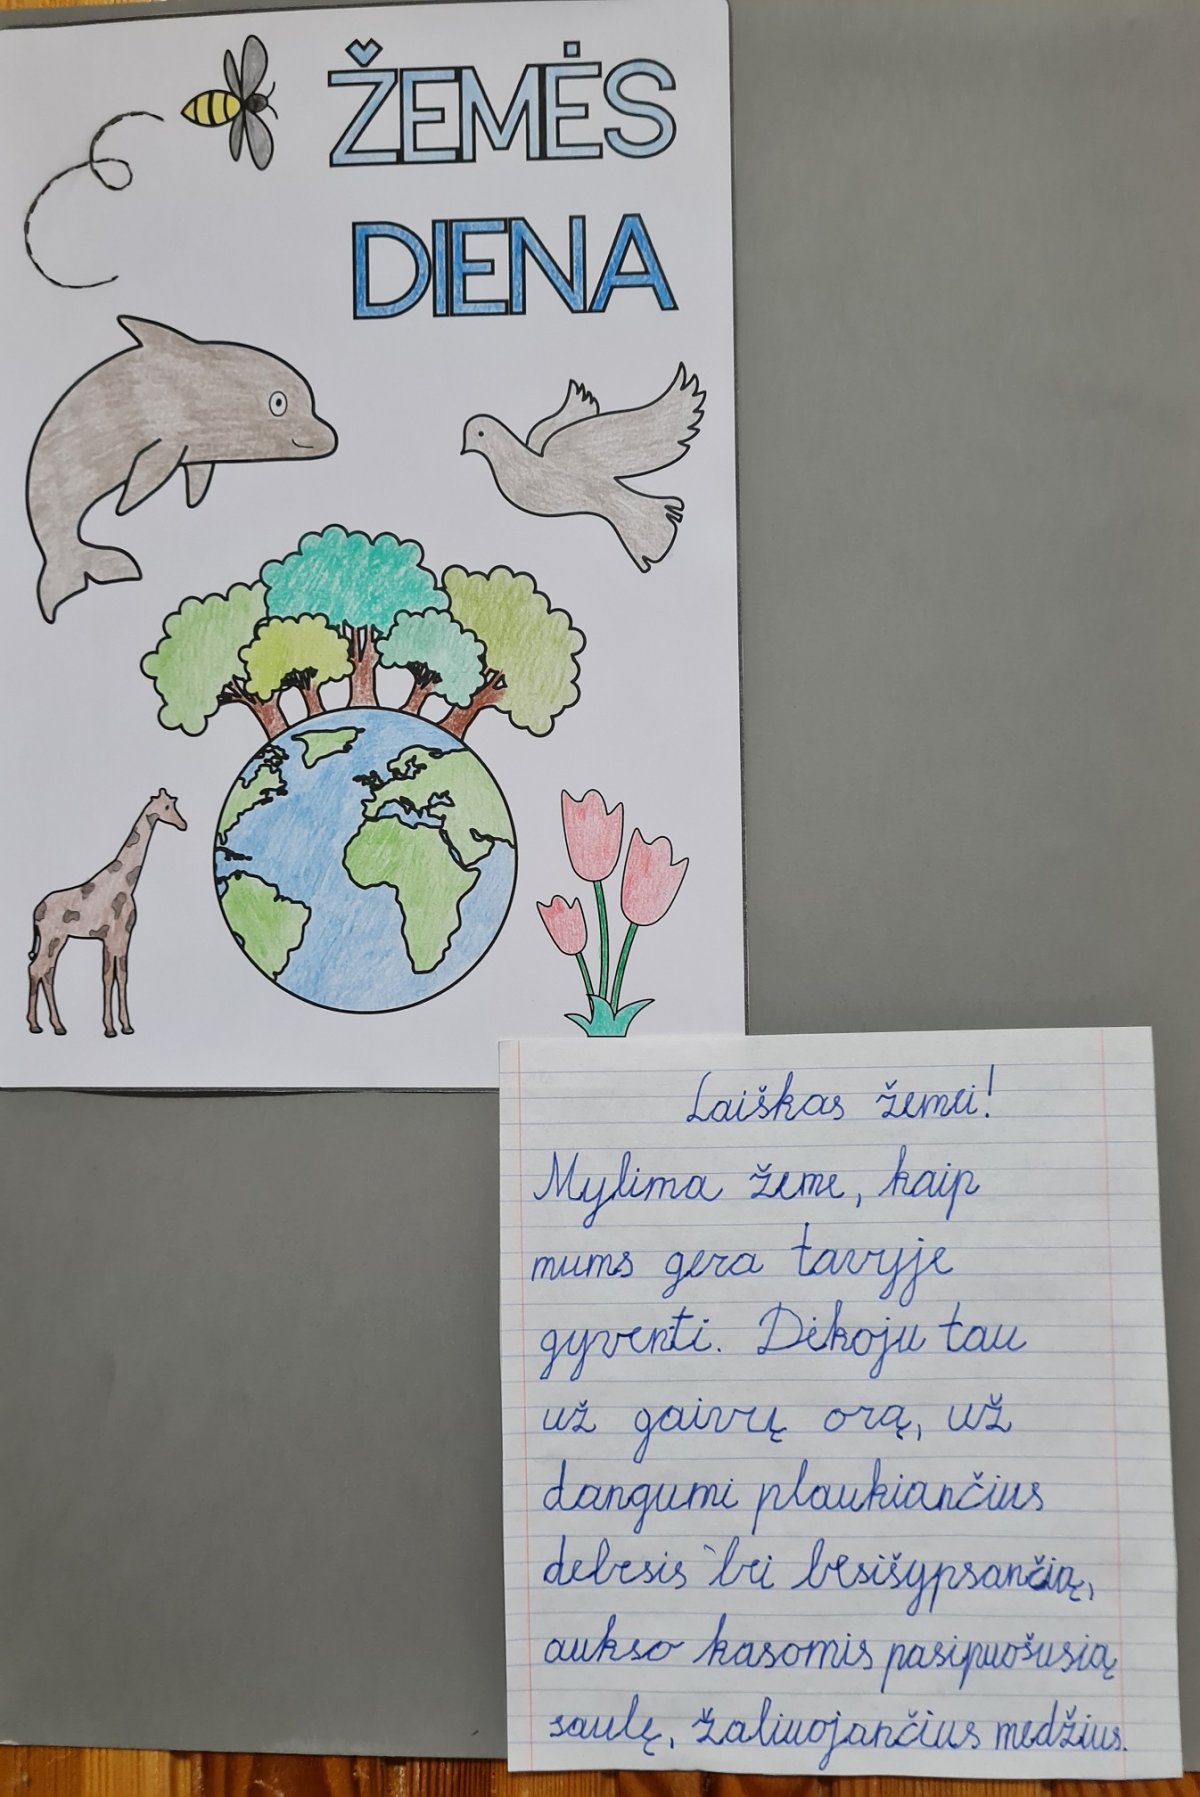 ŽEMĖS
DIENA
Laiškas žemei!
Mylima žeme, kaip
mums gera tavyje
gyventi. Dėkoju tau
už gaivų orą, už
dangumi plaukiančius
debesis bei besišypsančią,
aukso kasomis pasipuošusią
saulę, žaliuojančius medžius.